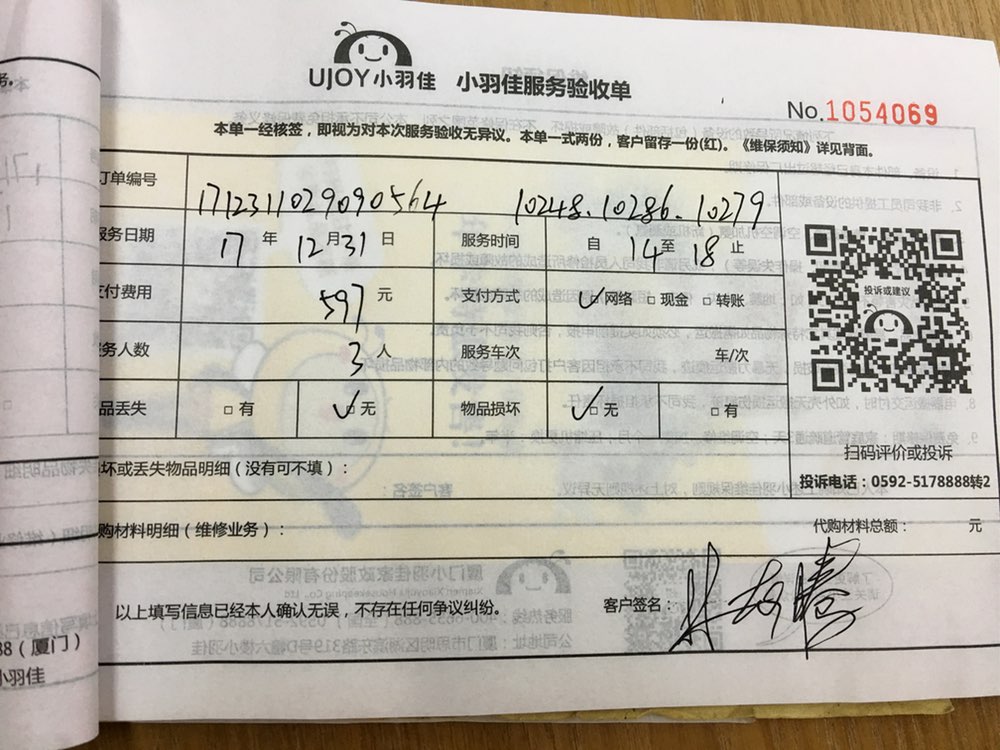 UJOY小羽佳 小羽佳服务验收单
No.1054069
本单一经核签，即视为对本次服务验收无异议。本单一式两份，客户留存一份(红)。《维保须知》详见背面。
订单编号 1712311029090564 10248.10286.10279
服务日期 17 年 12 月 31 日 服务时间 自 14 至 18 止
支付费用 597 元 支付方式 ☑网络 □现金 □转账
务人数 3 人 服务车次 车/次
品丢失 □有 ☑无 物品损坏 ☑无 □有
投诉或建议
扫码评价或投诉
投诉电话：0592-5178888转2
坏或丢失物品明细（没有可不填）：
购材料明细（维修业务）： 代购材料总额： 元
以上填写信息已经本人确认无误，不存在任何争议纠纷。 客户签名：
88（厦门）
小羽佳